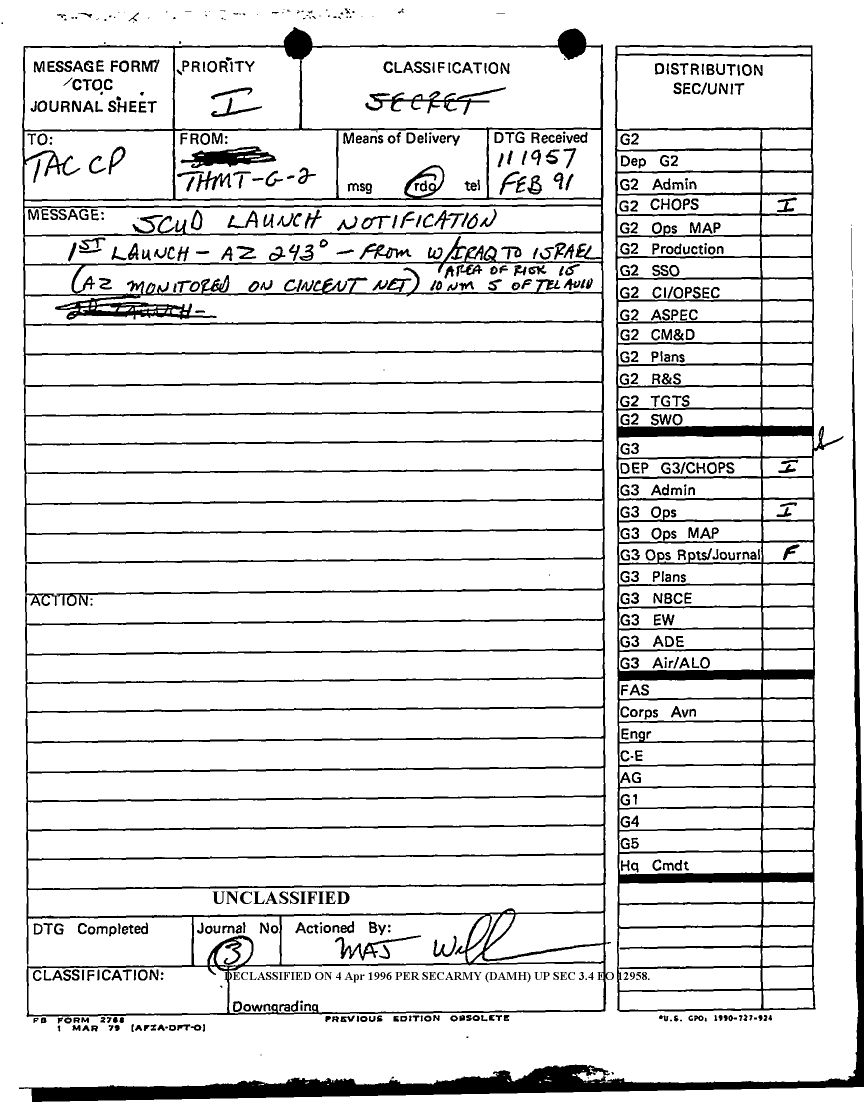 MESSAGE FORM/
CTOC
JOURNAL SHEET
PRIORITY
I
CLASSIFICATION
SECRET
TO:
TAC CP
FROM:
THMT-G-2
Means of Delivery
msg rdo tel
DTG Received
111957
FEB 91
MESSAGE: SCUD LAUNCH NOTIFICATION
1ST LAUNCH - AZ 243° - FROM W/IRAQ TO ISRAEL
(AZ MONITORED ON CINCENT NET) AREA OF RISK IS
10 NM S OF TEL AVIV
ACTION:
UNCLASSIFIED
DTG Completed
Journal No
3
Actioned By:
MAJ
CLASSIFICATION:
DECLASSIFIED ON 4 Apr 1996 PER SECARMY (DAMH) UP SEC 3.4 EO 12958.
Downgrading
FB FORM 2768
1 MAR 79 (AFZA-DPT-O)
PREVIOUS EDITION OBSOLETE
DISTRIBUTION
SEC/UNIT
G2
Dep G2
G2 Admin
G2 CHOPS I
G2 Ops MAP
G2 Production
G2 SSO
G2 CI/OPSEC
G2 ASPEC
G2 CM&D
G2 Plans
G2 R&S
G2 TGTS
G2 SWO
G3
DEP G3/CHOPS I
G3 Admin
G3 Ops I
G3 Ops MAP
G3 Ops Rpts/Journal F
G3 Plans
G3 NBCE
G3 EW
G3 ADE
G3 Air/ALO
FAS
Corps Avn
Engr
C-E
AG
G1
G4
G5
Hq Cmdt
*U.S. GPO: 1990-727-924